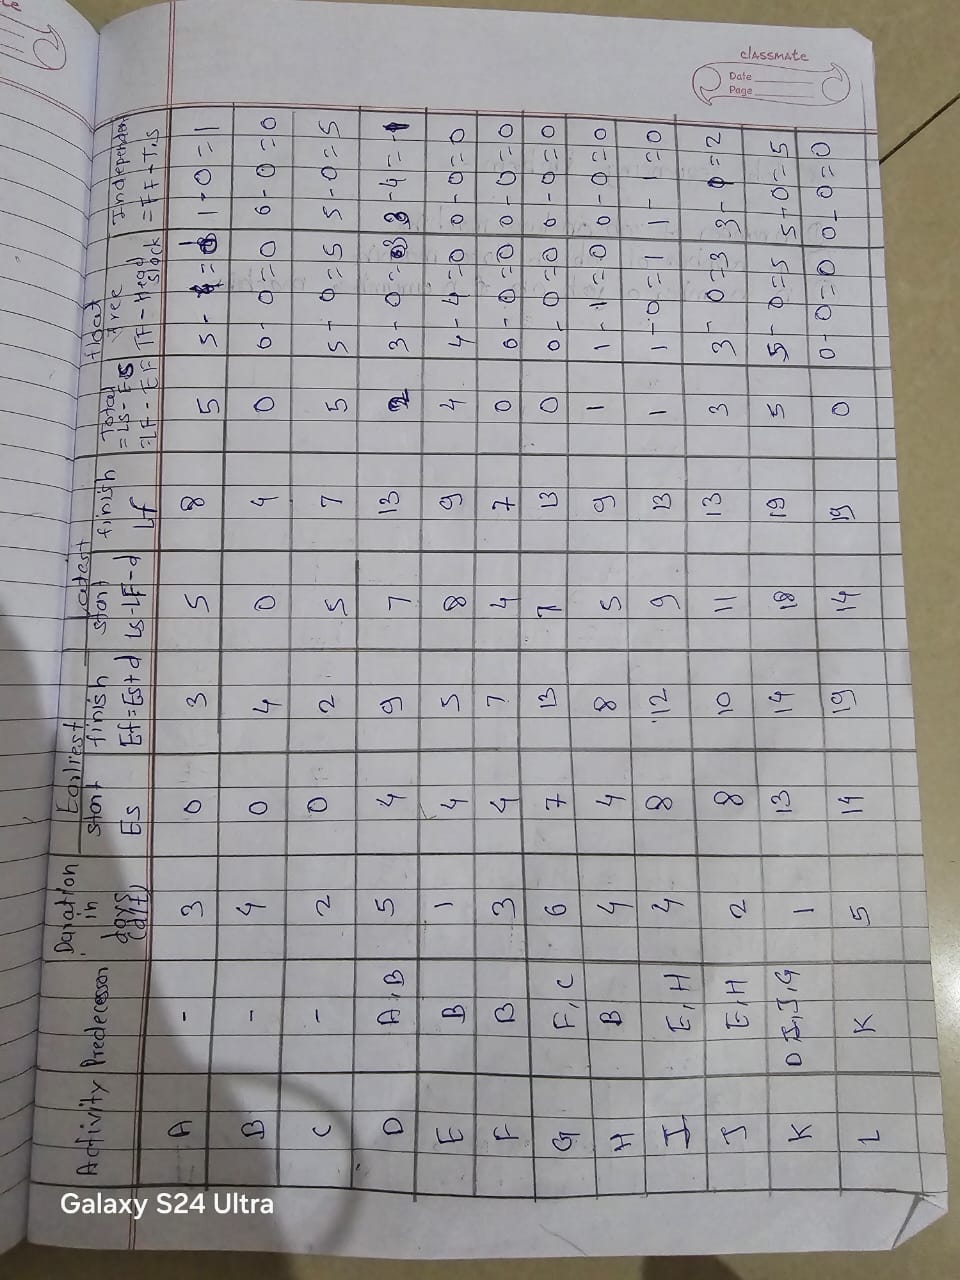 classmate
Date
Page
Activity Predecessor Duration in days (d/t) Earliest Latest float
start Es finish Ef=Es+d start Ls-Lf-d finish Lf Total =Ls-Es =LF-EF free TF-Head slack Independent =FF-T.S
A - 3 0 3 5 8 5 1-0=1
B - 4 0 4 0 4 0 0-0=0 0-0=0
C - 2 0 2 5 7 5 5-0=5 5-0=5
D A,B 5 4 9 7 13 3-0=
E B 1 4 5 8 9 4 4-4=0 0-0=0
F B 3 4 7 4 7 0 0-0=0 0-0=0
G F,C 6 7 13 7 13 0 0-0=0 0-0=0
H B 4 4 8 5 9 1 1-1=0 0-0=0
I E,H 4 8 12 9 13 1 1-0=1 1-1=0
J E,H 2 8 10 11 13 3 3-0=3 =2
K G 1 13 14 18 19 5 5-0=5 5-0=5
L K 5 14 19 14 19 0 0-0=0 0-0=0
Galaxy S24 Ultra